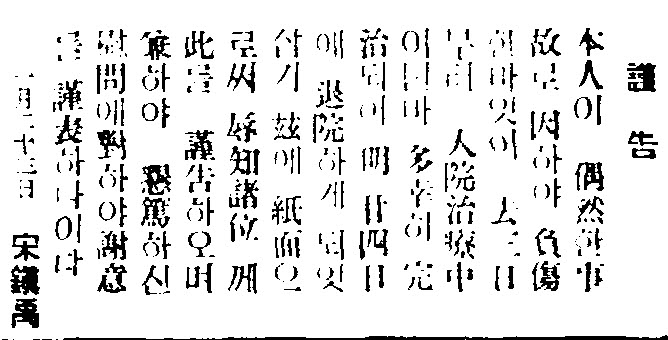 謹告
本人이 偶然한事
故로 因하야 負傷
한바잇어 去三日
부터 入院治療中
이던바 多幸히 完
治되어 明廿四日
에 退院하게 되엇
삽기 玆에 紙面으
로써 辱知諸位께
此를 謹告하오며
兼하야 懇篤하신
慰問에對하야謝意
를 謹表하나이다
一月二十三日
宋鎭禹